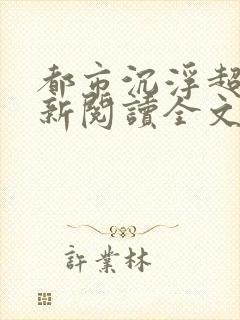 都市沉浮超
新閱讀全文
許業林